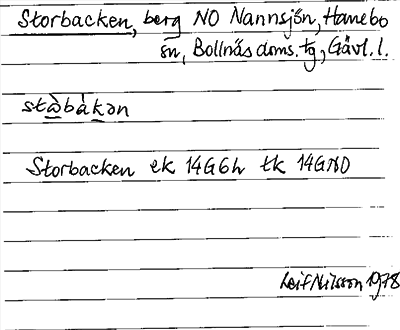 Storbacken, berg NO Nannsjön, Hanebo
sn, Bollnäs doms. tg, Gävl. l.
stàbàkən
Storbacken ek 14G6h tk 14GNO
Leif Nilsson 1978